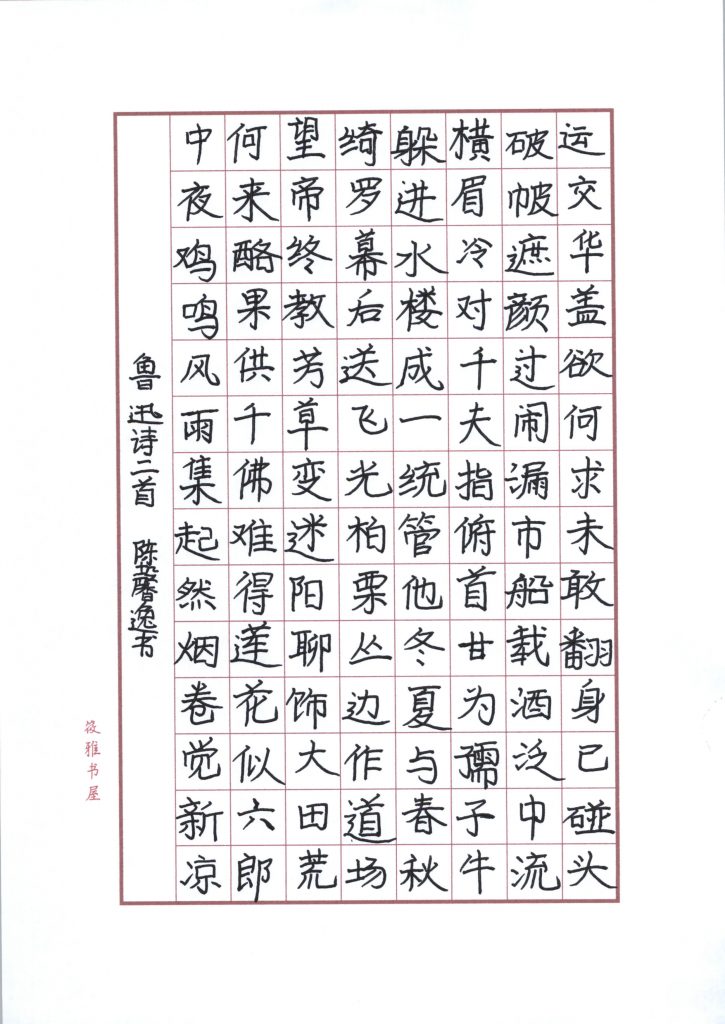 运交华盖欲何求未敢翻身已碰头
破帽遮颜过闹市漏船载酒泛中流
横眉冷对千夫指俯首甘为孺子牛
躲进小楼成一统管他冬夏与春秋
绮罗幕后送飞光柏栗丛边作道场
望帝终教芳草变迷阳聊饰大田荒
何来酪果供千佛难得莲花似六郎
中夜鸡鸣风雨集起然烟卷觉新凉
鲁迅诗二首 陈馨逸书
筱雅书屋